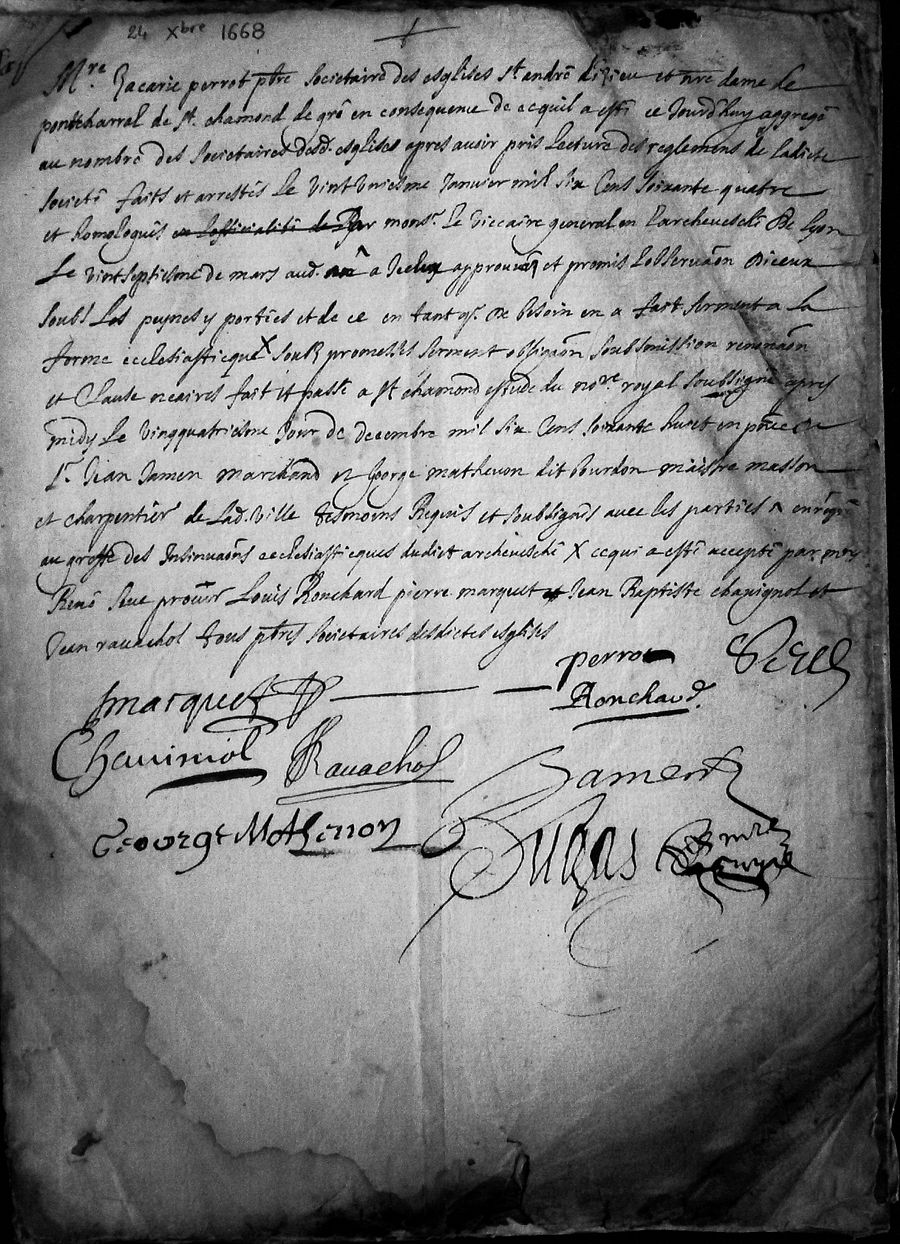 24 Xbre 1668
Mre Zacarie perrot ptre Societaire des esglises St andré dizieu et nre dame de
pontcharral de St. chamond le gré en consequence de ce quil a esté ce Jourdhuy aggregé
au nombre des Societaires desd. esglises apres avoir pris Lecture des reglemens de ladicte
Societé faits et arrestés Le vint uniesme Janvier mil six Cens soixante quatre
et homologués en Lofficialité de Par monsr. Le viccaire general en Larchevesché De Lyon
Le vint septiesme de mars aud. an a Iceluy approuvés et promis Lobservaon Diceux
soubs Les peynes y portées et de ce en tant q. De besoin en a fait serment a La
forme ecclesiasticque X soubz promesses serment obligaon soubsmission renonaon
et Clause necaires fait et passé a St chamond estude du nore royal soubsigné apres
midy Le vingquatriesme Jour de decembre mil six Cens soixante huict en pnce De
Sr. Jean Jamen marchand et George mathevon dit bourdon maistre masson
et charpentier de Lad. ville tesmoins Requis et soubsignés avec les parties
au greffe des Insinuaons ecclesiasticques dudict archevesché X ce qui a esté accepté par mres
René Seve Louis Ronchard pierre marquet et Jean Baptiste chavignol et
Jean ravachol tous ptres Societaires desdictes esglises
perrot
Seve
marquet
Ronchard
Chavinol
Ravachol
Jament
George Mothevon
Dugas